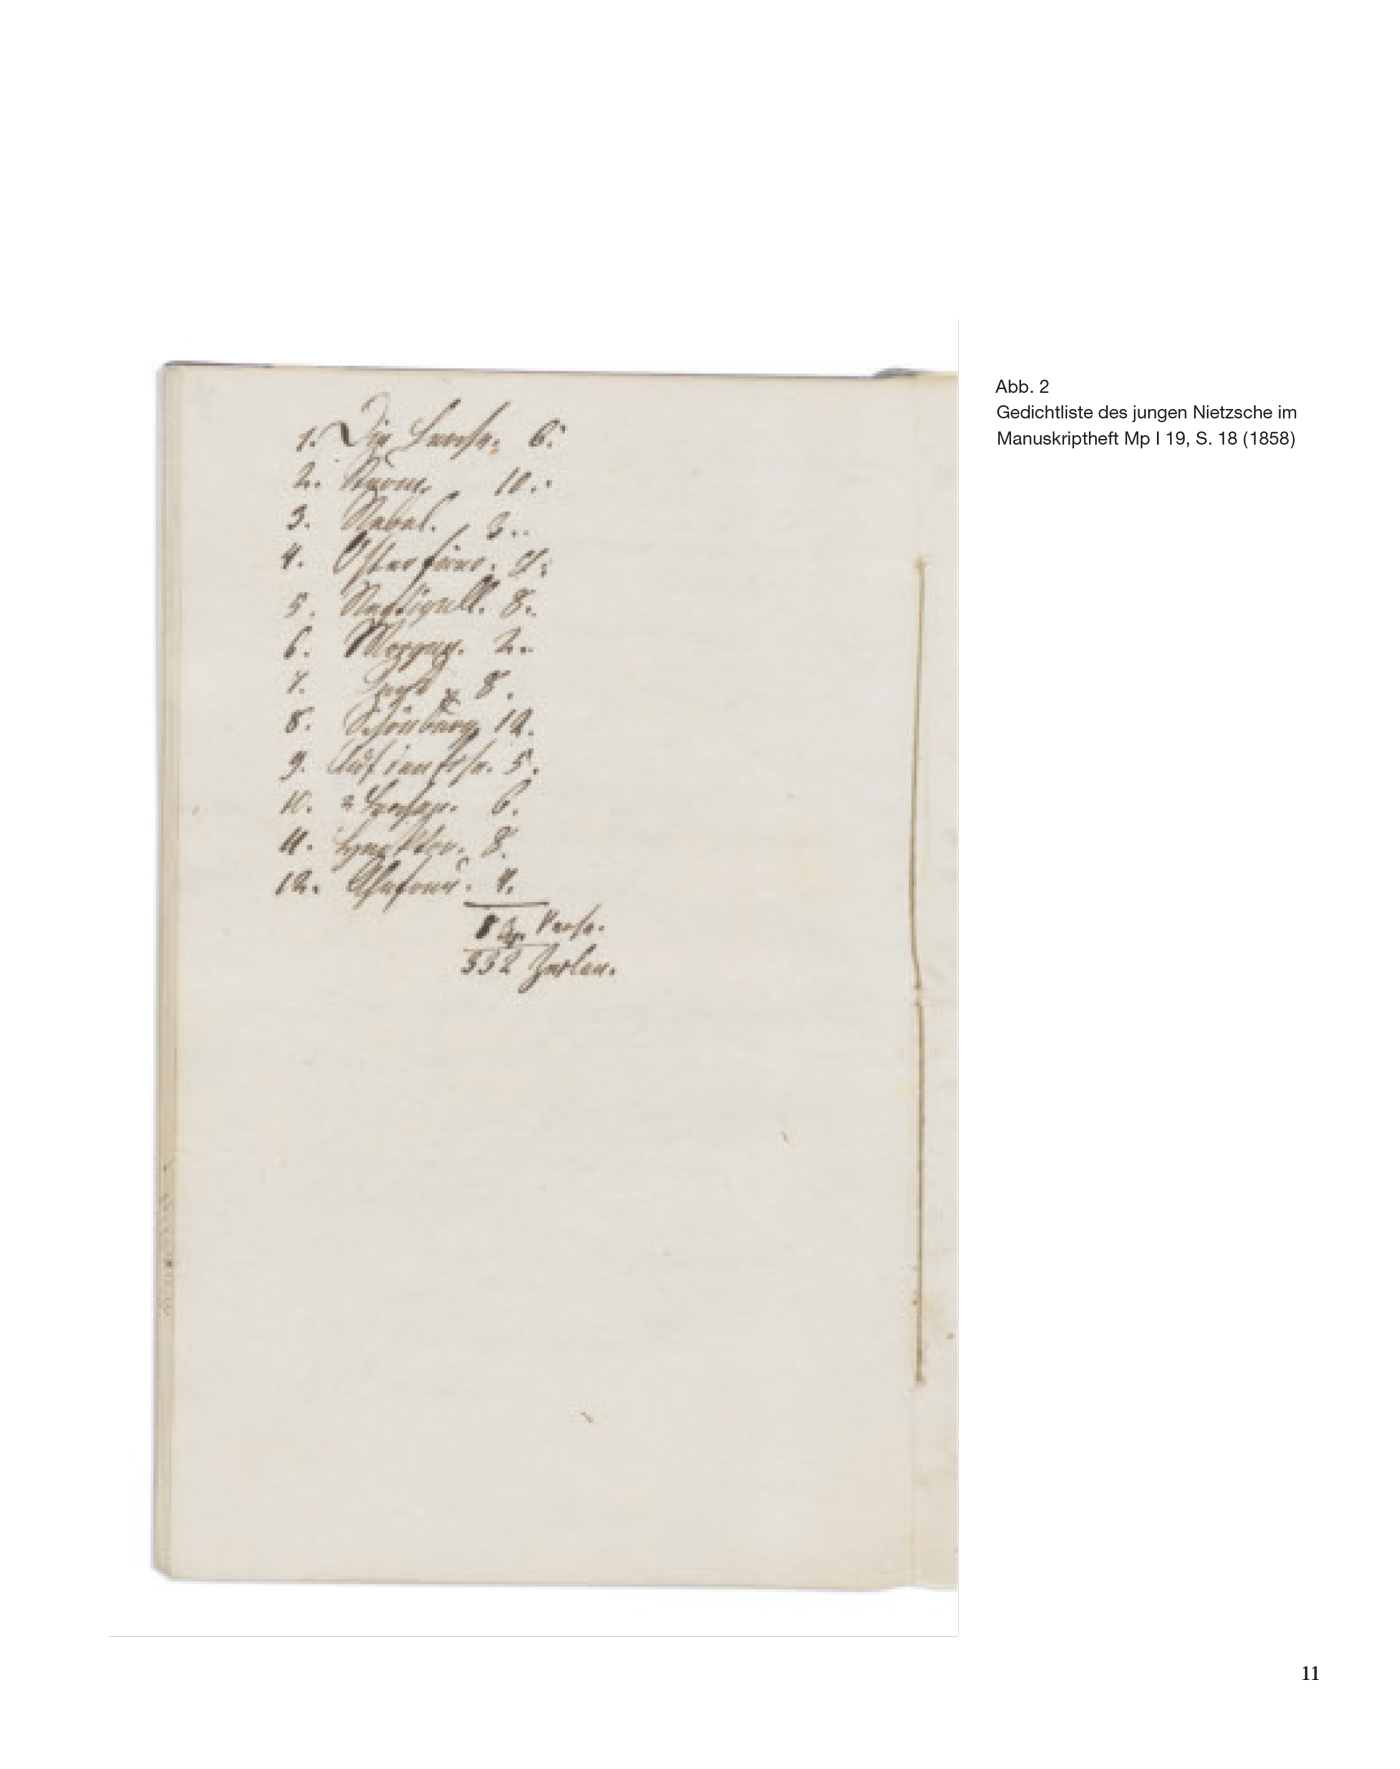 1. Die Lerche. 6.
2. Sturm. 10.
3. Nebel. 3.
4. Osterfeier.
5. Nachtigall. 8.
6. Morgen. 2.
7. 8.
8. Schönburg 12.
9. Auf 5.
10. 2 6.
11. 8.
12. 4.
Verse.
332 Zeilen.
Abb. 2
Gedichtliste des jungen Nietzsche im
Manuskriptheft Mp I 19, S. 18 (1858)
11